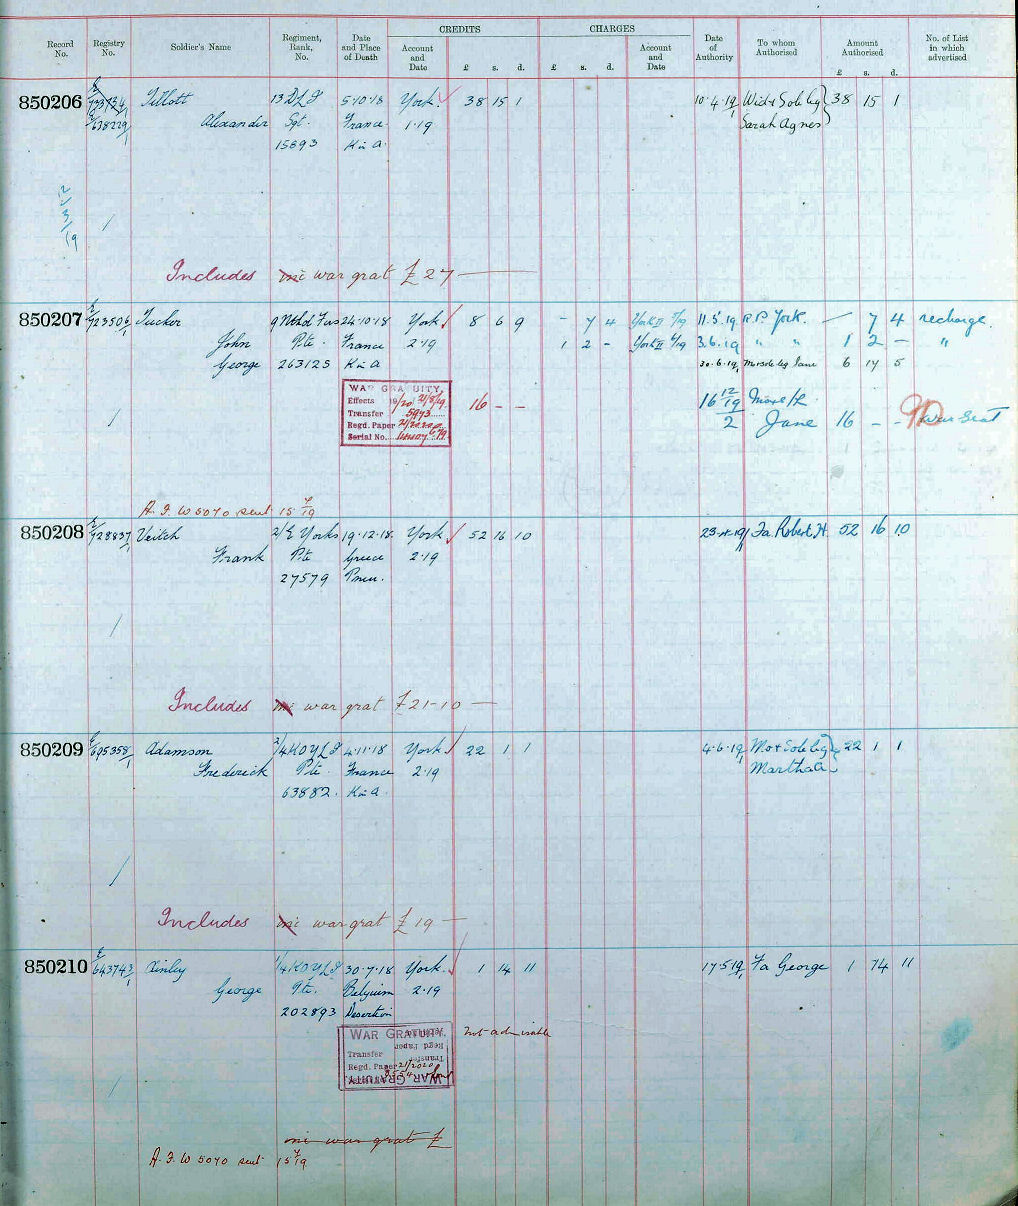 CREDITS CHARGES
Record No. Registry No. Soldier's Name Regiment, Rank, No. Date and Place of Death Account and Date £ s. d. £ s. d. Account and Date Date of Authority To whom Authorised Amount Authorised £ s. d. No. of List in which advertised
850206 Tillott 13 DLI 5·10·18 York 38 15 1 10·4·19 Wid & Sole Leg 38 15 1
638229 Alexander Sgt. France 1·19 Sarah Agnes
15893 K in A
12/3/19
Includes war grat £27
850207 723506/1 Tucker 9 Nthd Fus 24·10·18 York 8 6 9 - 7 4 York II 11.5.19 R.P. York. — 7 4 recharge.
John Pte. France 2·19 1 2 - York II 3.6.19 " " 1 2 - "
George 263125 K in A 30·6·19 Mo & sole leg Jane 6 17 5
WAR GRATUITY,
Effects
Transfer
Regd. Paper
Serial No.
16 - - 16 12/19 2 Jane 16 - - War Grat
A. F. W 5070 sent 15 7/19
850208 728837/1 Veitch 2/E Yorks 19·12·18 York 52 16 10 Fa Robert H 52 16 10
Frank Pte Greece 2·19
27579 Pneu.
Includes war grat £21-10 —
850209 695358/1 Adamson 2/4 KOYLI 4·11·18 York 22 1 1 4·6·19 Mo & Sole leg 22 1 1
Frederick Pte. France 2·19 Martha A
63882. K in A
Includes war grat £19 —
850210 643743/1 George 1/4 KOYLI 30·7·18 York. 1 14 11 17·5·19 Fa George 1 14 11
Pte. Belgium 2·19
202893 Desertion
WAR GRATUITY. Not admissible
Transfer
Regd. Paper 21/2020
WAR GRATUITY
war grat £
A. F. W 5070 sent 15 7/19